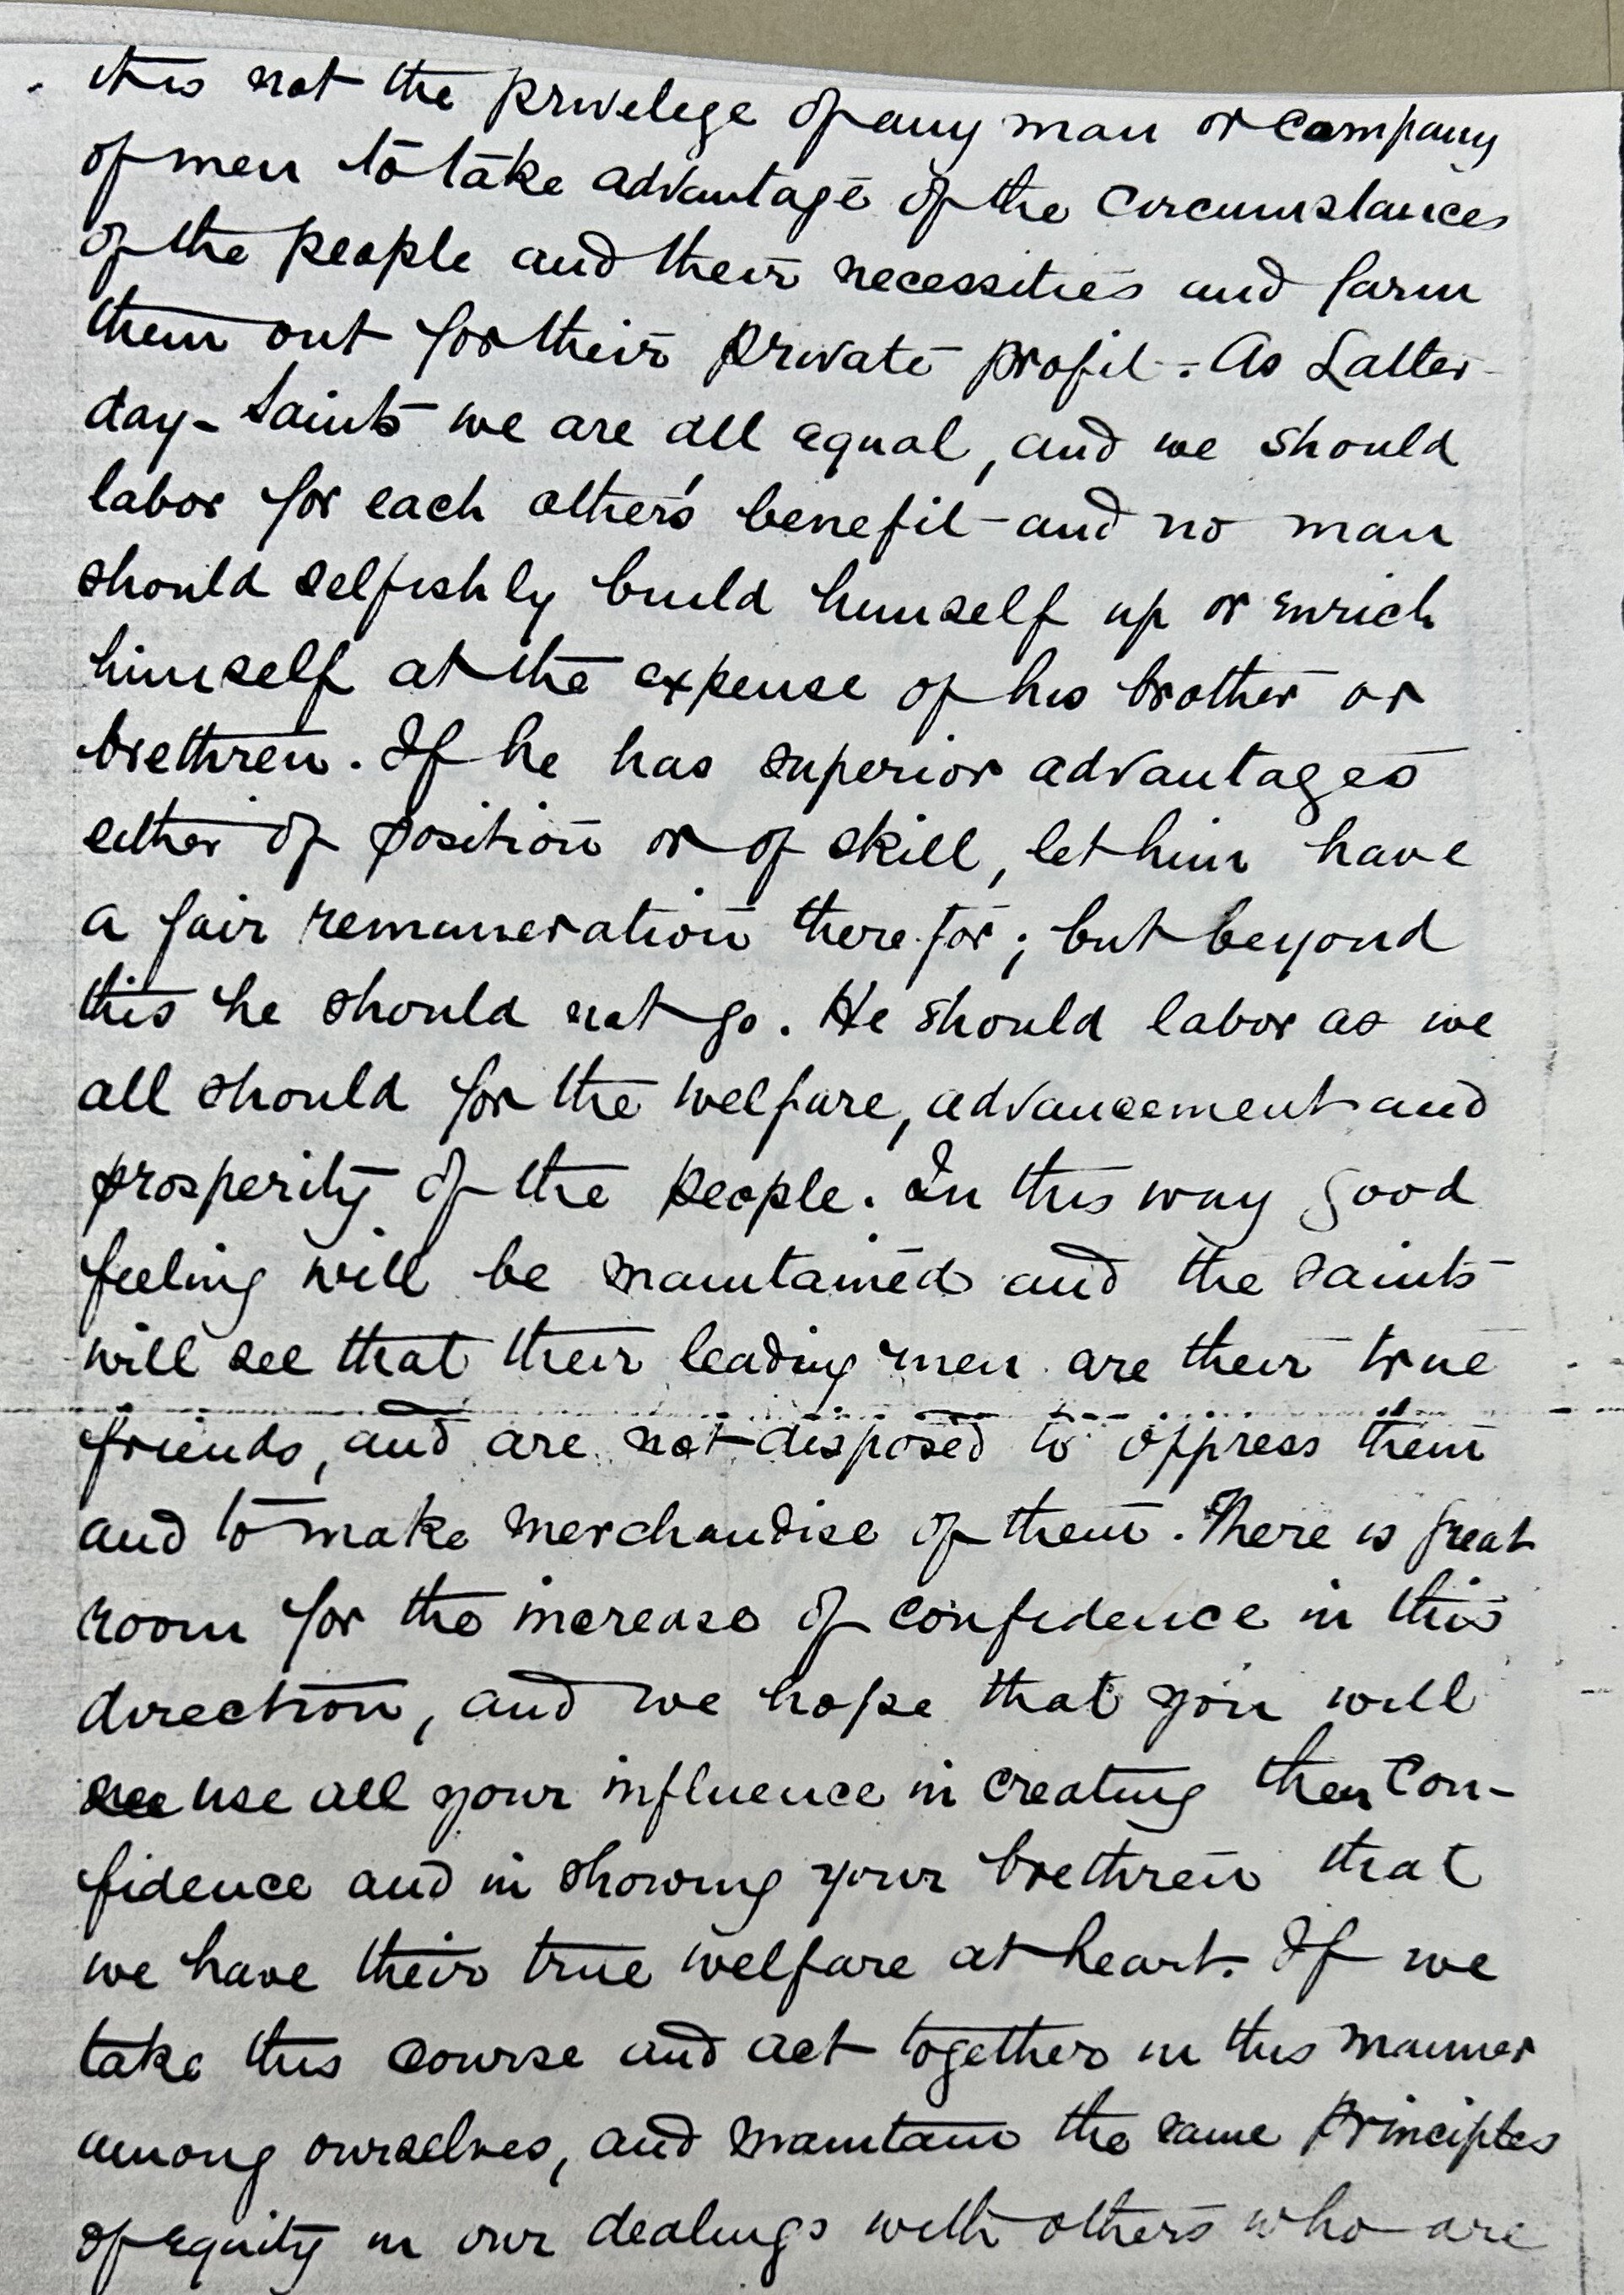 it is not the privelege of any man or company
of men to take advantage of the circumstances
of the people and their necessities and farm
them out for their private profit. As Latter-
day-Saints we are all equal, and we should
labor for each other's benefit and no man
should selfishly build himself up or enrich
himself at the expense of his brother or
brethren. If he has superior advantages
either of position or of skill, let him have
a fair remuneration therefor; but beyond
this he should not go. He should labor as we
all should for the welfare, advancement and
prosperity of the people. In this way good
feeling will be maintained and the saints
will see that their leading men are their true
friends, and are not disposed to oppress them
and to make merchandise of them. There is great
room for the increase of confidence in this
direction, and we hope that you will
see use all your influence in creating then Con-
fidence and in showing your brethren that
we have their true welfare at heart. If we
take this course and act together in this manner
among ourselves, and maintain the same principles
of equity in our dealings with others who are